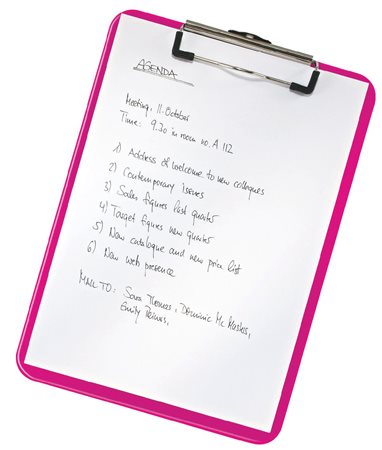 AGENDA
Meeting, 11. October
Time: 9.30 in room no. A 112
1) Address of welcome to new collegues
2) Contemporary issues
3) Sales figures last quater
4) Target figures new quater
5) New catalogue and new price list
6) New web presence
MAIL TO: Sara Thomas, Dominic Mc
Emily